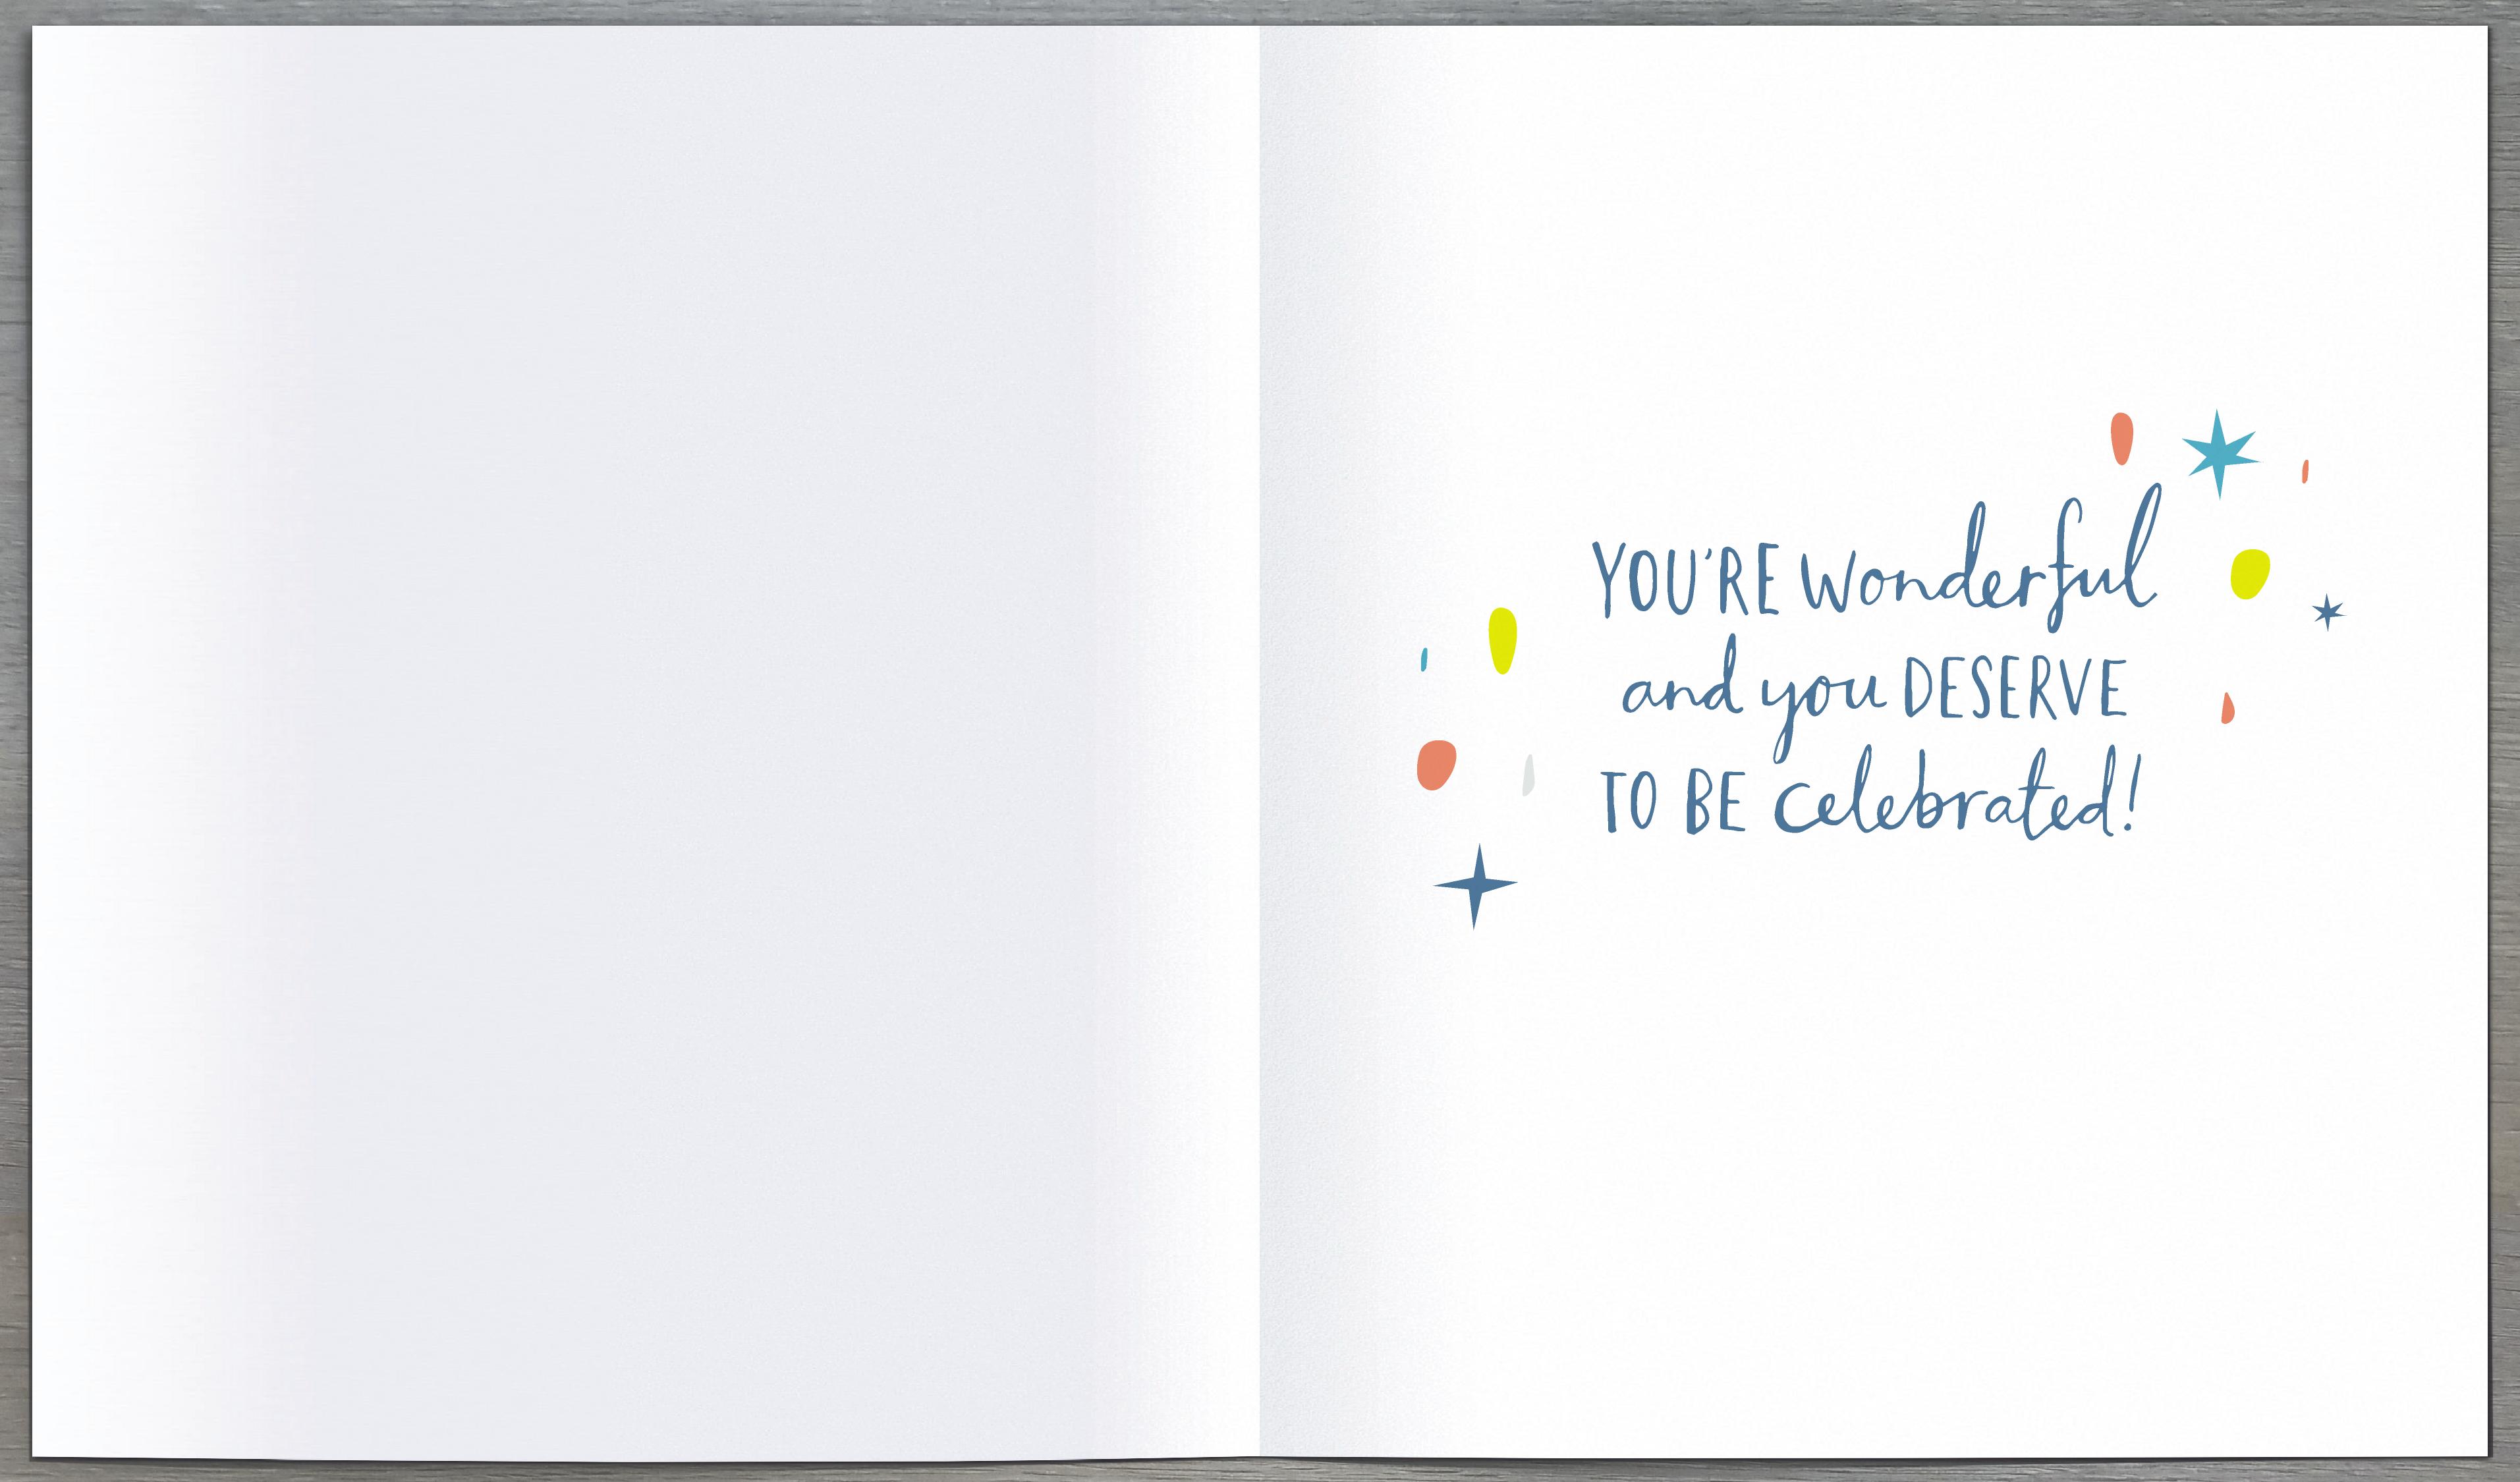 YOU'RE wonderful
and you DESERVE
TO BE celebrated!